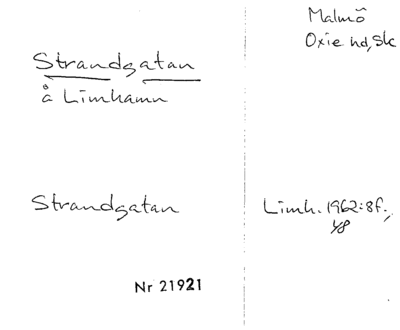 Strandgatan
å Limhamn
Strandgatan
Nr 21921
Malmö
Oxie hd, Sk
Limh. 1962: 8f.,
48